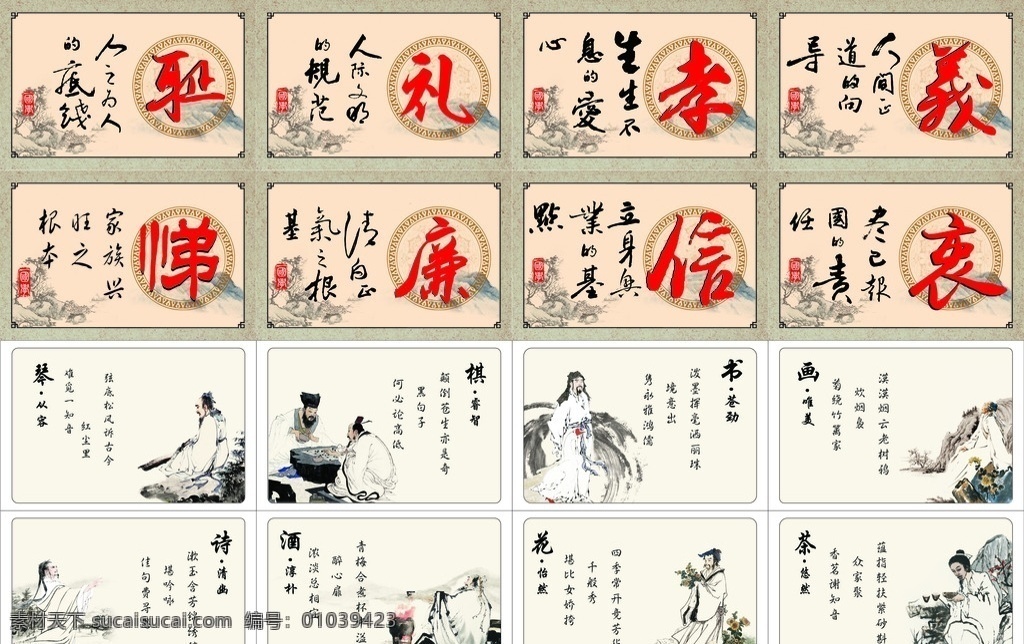 耻
人之为人
的底线
國學
礼
人际文明
的规范
國學
孝
生生不
息的愛
心
國學
義
人间正
道的向
导
國學
悌
家族兴
旺之
根本
國學
廉
清白正
氣之根
基
國學
信
立身無
業的基
點
國學
衷
盡己報
國的責
任
國學
琴·从容
弦底松风诉古今
红尘里
难觅一知音
棋·睿智
颠倒苍生亦是奇
黑白子
何必论高低
书·苍劲
泼墨挥毫洒丽珠
境意出
隽永雅鸿儒
画·唯美
漠漠烟云老树鸦
炊烟袅
菊绕竹篱家
诗·清幽
漱玉含芳锦绣
堪吟咏
佳句费寻
酒·淳朴
青梅合煮杯
溢
醉心扉
浓淡总相
花·怡然
四季常开竞芳华
千般秀
堪比女娇挎
茶·悠然
蕴指轻扶紫砂
众家聚
香茗谢知音
素材天下 sucaisucai.com 编号：01039423